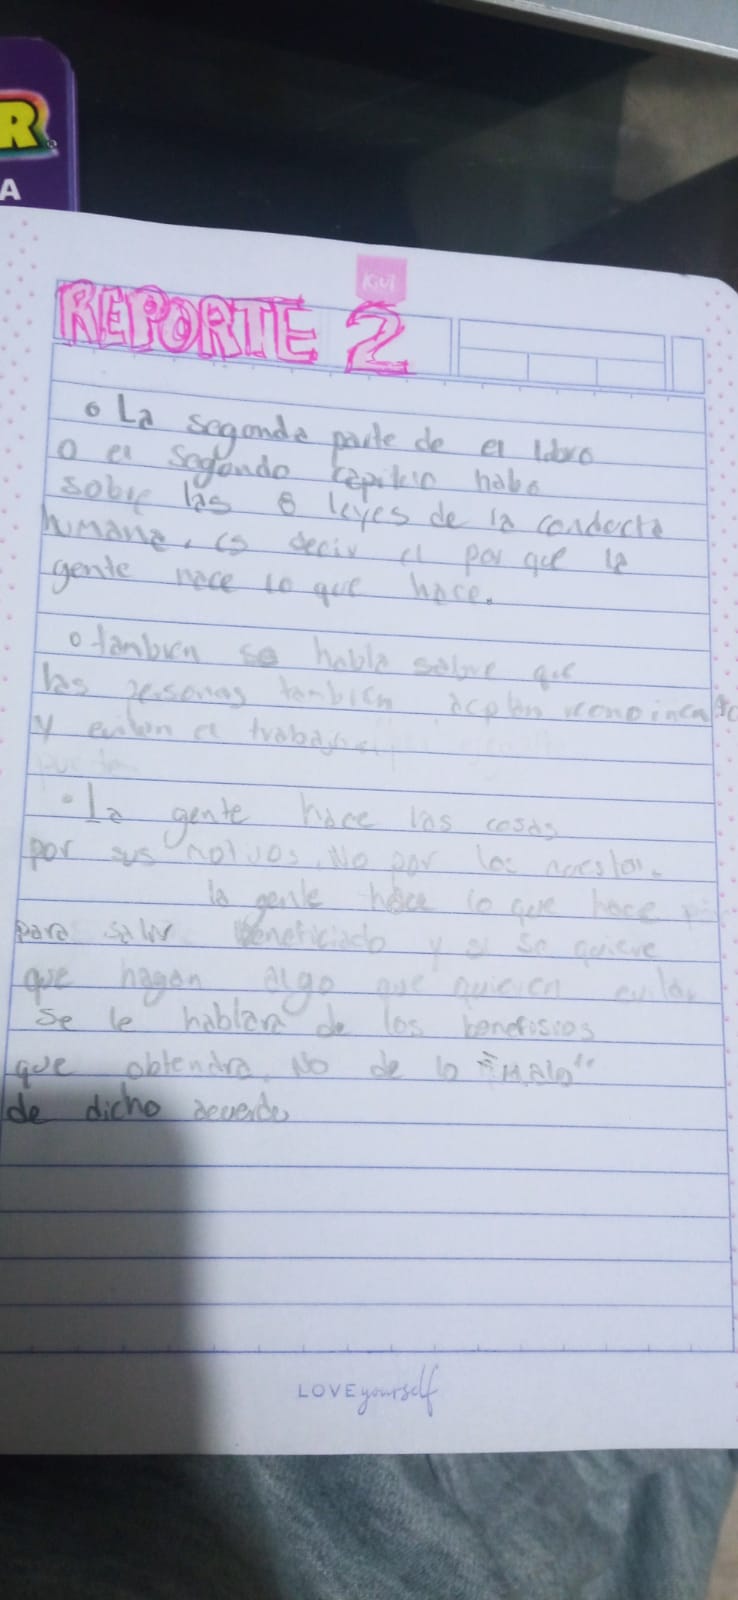 R
A
Kiut
REPORTE 2
La segonda parte de el libro
o el segondo capitulo habo
sobre las 8 leyes de la conducta
humana, es decir el por que la
gente hace lo que hace.
tambien se habla sobre que
las personas tambien
y evitan el trabajo
La gente hace las cosas
por sus motivos. No por los nuestros.
la gente hace lo que hace
para salir beneficiado y si se quiere
que hagan algo que quieren evitar
se le hablara de los benefisios
que obtendra. No de lo "MALO"
de dicho acuerdo
LOVE yourself